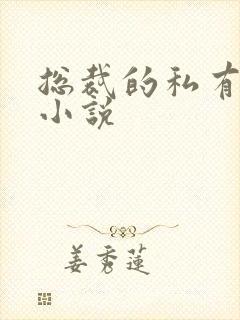 总裁的私有
小說
姜秀蓮